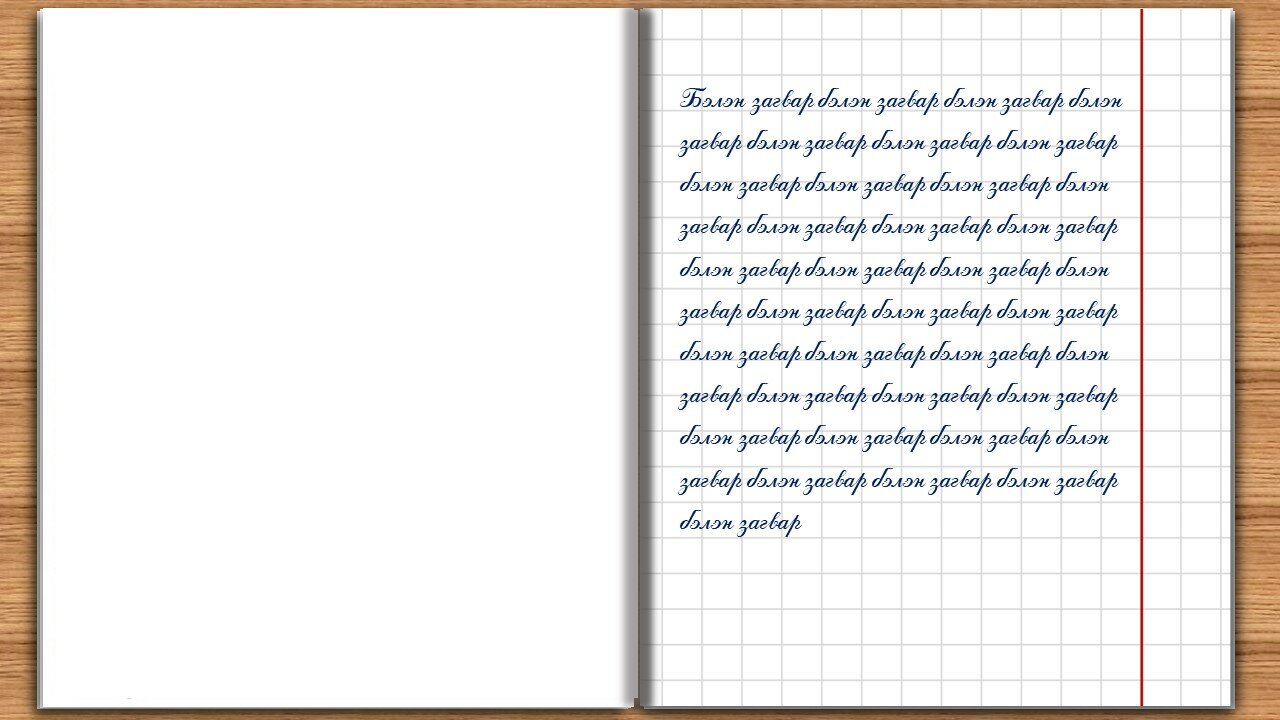 Бэлэн загвар бэлэн загвар бэлэн загвар бэлэн
загвар бэлэн загвар бэлэн загвар бэлэн загвар
бэлэн загвар бэлэн загвар бэлэн загвар бэлэн
загвар бэлэн загвар бэлэн загвар бэлэн загвар
бэлэн загвар бэлэн загвар бэлэн загвар бэлэн
загвар бэлэн загвар бэлэн загвар бэлэн загвар
бэлэн загвар бэлэн загвар бэлэн загвар бэлэн
загвар бэлэн загвар бэлэн загвар бэлэн загвар
бэлэн загвар бэлэн загвар бэлэн загвар бэлэн
загвар бэлэн загвар бэлэн загвар бэлэн загвар
бэлэн загвар